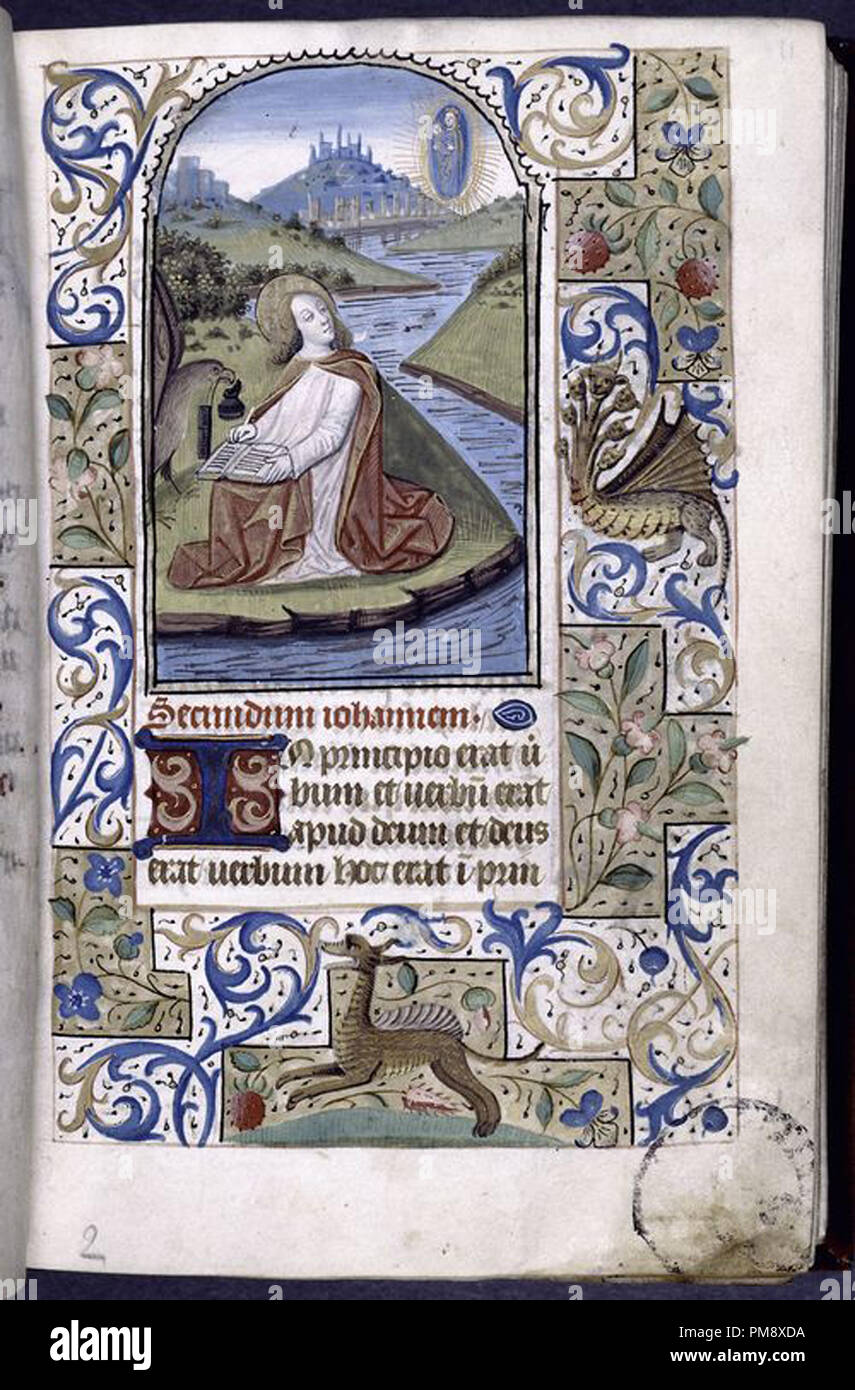 Secundum iohannem.
IN principio erat ũ
bum et uerbũ erat
apud deum et deus
erat uerbum hoc erat ĩ prin
2
alamy
Image ID: PM8XDA
www.alamy.com